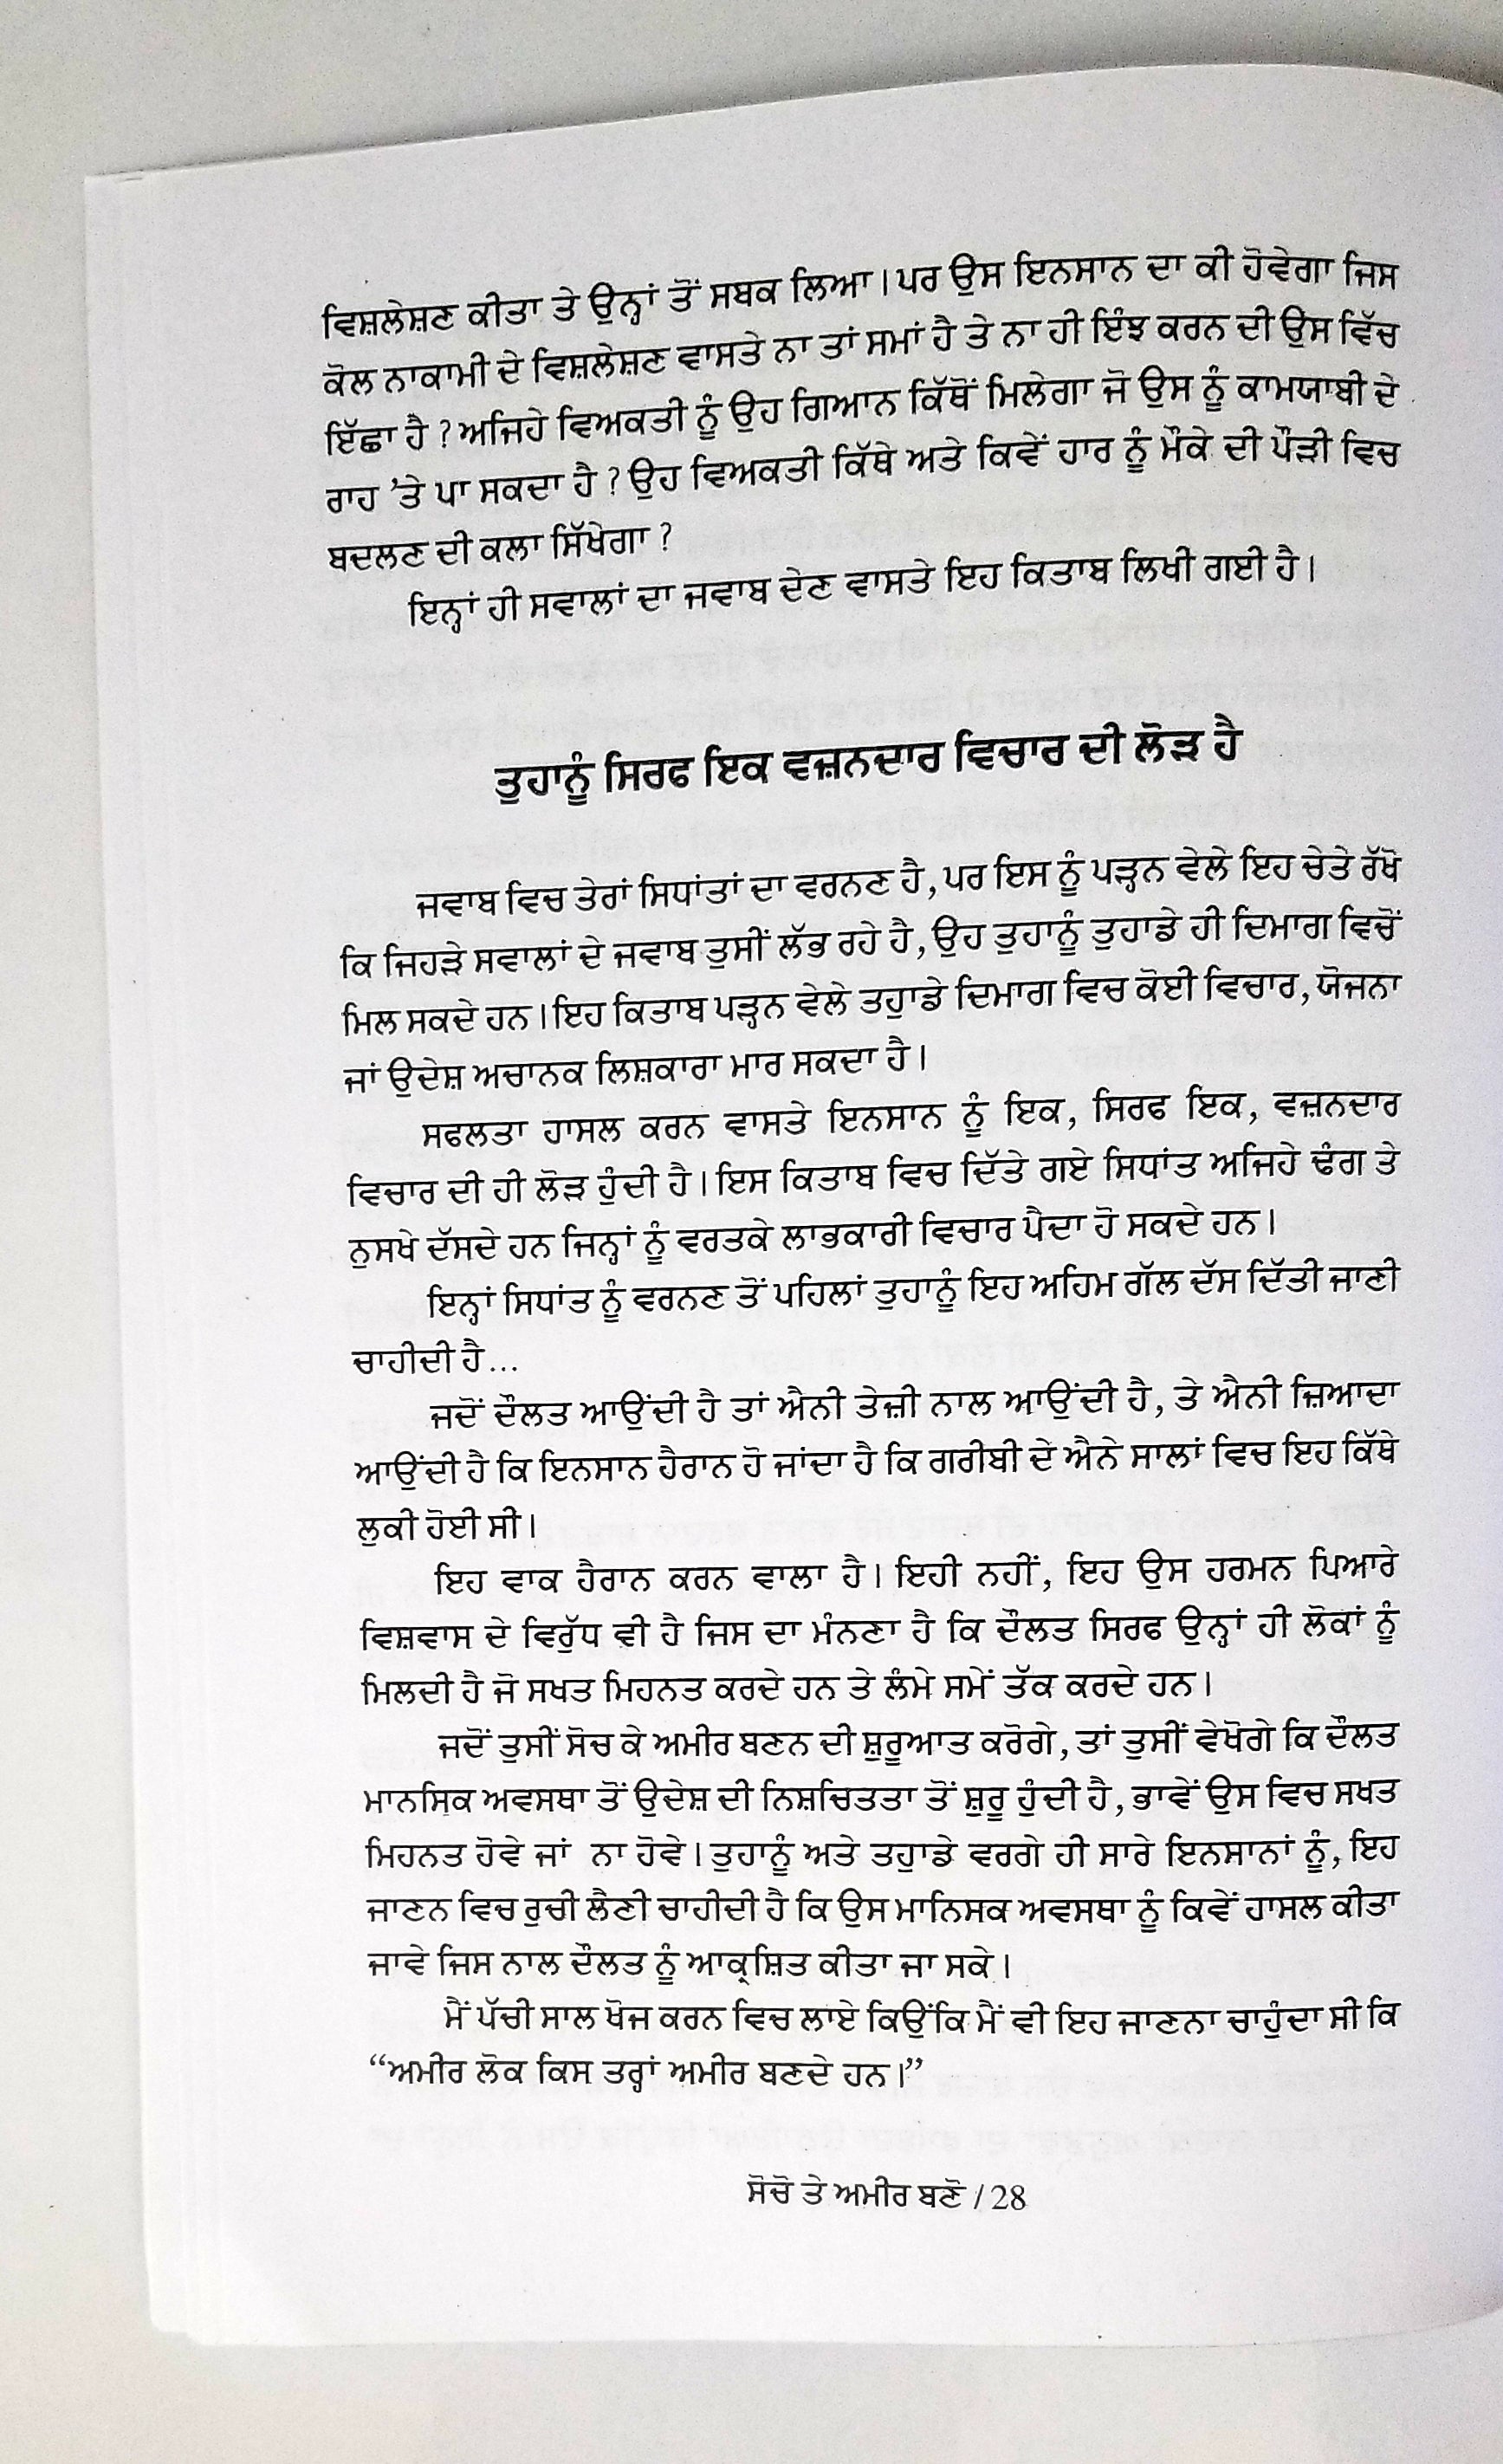 ਵਿਸ਼ਲੇਸ਼ਣ ਕੀਤਾ ਤੇ ਉਨ੍ਹਾਂ ਤੋਂ ਸਬਕ ਲਿਆ। ਪਰ ਉਸ ਇਨਸਾਨ ਦਾ ਕੀ ਹੋਵੇਗਾ ਜਿਸ
ਕੋਲ ਨਾਕਾਮੀ ਦੇ ਵਿਸ਼ਲੇਸ਼ਣ ਵਾਸਤੇ ਨਾ ਤਾਂ ਸਮਾਂ ਹੈ ਤੇ ਨਾ ਹੀ ਇੰਝ ਕਰਨ ਦੀ ਉਸ ਵਿੱਚ
ਇੱਛਾ ਹੈ ? ਅਜਿਹੇ ਵਿਅਕਤੀ ਨੂੰ ਉਹ ਗਿਆਨ ਕਿੱਥੋਂ ਮਿਲੇਗਾ ਜੋ ਉਸ ਨੂੰ ਕਾਮਯਾਬੀ ਦੇ
ਰਾਹ ’ਤੇ ਪਾ ਸਕਦਾ ਹੈ ? ਉਹ ਵਿਅਕਤੀ ਕਿੱਥੇ ਅਤੇ ਕਿਵੇਂ ਹਾਰ ਨੂੰ ਮੌਕੇ ਦੀ ਪੌੜੀ ਵਿਚ
ਬਦਲਣ ਦੀ ਕਲਾ ਸਿੱਖੇਗਾ ?
ਇਨ੍ਹਾਂ ਹੀ ਸਵਾਲਾਂ ਦਾ ਜਵਾਬ ਦੇਣ ਵਾਸਤੇ ਇਹ ਕਿਤਾਬ ਲਿਖੀ ਗਈ ਹੈ।
ਤੁਹਾਨੂੰ ਸਿਰਫ ਇਕ ਵਜ਼ਨਦਾਰ ਵਿਚਾਰ ਦੀ ਲੋੜ ਹੈ
ਜਵਾਬ ਵਿਚ ਤੇਰਾਂ ਸਿਧਾਂਤਾਂ ਦਾ ਵਰਨਣ ਹੈ, ਪਰ ਇਸ ਨੂੰ ਪੜ੍ਹਨ ਵੇਲੇ ਇਹ ਚੇਤੇ ਰੱਖੋ
ਕਿ ਜਿਹੜੇ ਸਵਾਲਾਂ ਦੇ ਜਵਾਬ ਤੁਸੀਂ ਲੱਭ ਰਹੇ ਹੈ, ਉਹ ਤੁਹਾਨੂੰ ਤੁਹਾਡੇ ਹੀ ਦਿਮਾਗ ਵਿਚੋਂ
ਮਿਲ ਸਕਦੇ ਹਨ। ਇਹ ਕਿਤਾਬ ਪੜ੍ਹਨ ਵੇਲੇ ਤਹੁਾਡੇ ਦਿਮਾਗ ਵਿਚ ਕੋਈ ਵਿਚਾਰ, ਯੋਜਨਾ
ਜਾਂ ਉਦੇਸ਼ ਅਚਾਨਕ ਲਿਸ਼ਕਾਰਾ ਮਾਰ ਸਕਦਾ ਹੈ।
ਸਫਲਤਾ ਹਾਸਲ ਕਰਨ ਵਾਸਤੇ ਇਨਸਾਨ ਨੂੰ ਇਕ, ਸਿਰਫ ਇਕ, ਵਜ਼ਨਦਾਰ
ਵਿਚਾਰ ਦੀ ਹੀ ਲੋੜ ਹੁੰਦੀ ਹੈ। ਇਸ ਕਿਤਾਬ ਵਿਚ ਦਿੱਤੇ ਗਏ ਸਿਧਾਂਤ ਅਜਿਹੇ ਢੰਗ ਤੇ
ਨੁਸਖੇ ਦੱਸਦੇ ਹਨ ਜਿਨ੍ਹਾਂ ਨੂੰ ਵਰਤਕੇ ਲਾਭਕਾਰੀ ਵਿਚਾਰ ਪੈਦਾ ਹੋ ਸਕਦੇ ਹਨ।
ਇਨ੍ਹਾਂ ਸਿਧਾਂਤ ਨੂੰ ਵਰਨਣ ਤੋਂ ਪਹਿਲਾਂ ਤੁਹਾਨੂੰ ਇਹ ਅਹਿਮ ਗੱਲ ਦੱਸ ਦਿੱਤੀ ਜਾਣੀ
ਚਾਹੀਦੀ ਹੈ...
ਜਦੋਂ ਦੌਲਤ ਆਉਂਦੀ ਹੈ ਤਾਂ ਐਨੀ ਤੇਜ਼ੀ ਨਾਲ ਆਉਂਦੀ ਹੈ, ਤੇ ਐਨੀ ਜ਼ਿਆਦਾ
ਆਉਂਦੀ ਹੈ ਕਿ ਇਨਸਾਨ ਹੈਰਾਨ ਹੋ ਜਾਂਦਾ ਹੈ ਕਿ ਗਰੀਬੀ ਦੇ ਐਨੇ ਸਾਲਾਂ ਵਿਚ ਇਹ ਕਿੱਥੇ
ਲੁਕੀ ਹੋਈ ਸੀ।
ਇਹ ਵਾਕ ਹੈਰਾਨ ਕਰਨ ਵਾਲਾ ਹੈ। ਇਹੀ ਨਹੀਂ, ਇਹ ਉਸ ਹਰਮਨ ਪਿਆਰੇ
ਵਿਸ਼ਵਾਸ ਦੇ ਵਿਰੁੱਧ ਵੀ ਹੈ ਜਿਸ ਦਾ ਮੰਨਣਾ ਹੈ ਕਿ ਦੌਲਤ ਸਿਰਫ ਉਨ੍ਹਾਂ ਹੀ ਲੋਕਾਂ ਨੂੰ
ਮਿਲਦੀ ਹੈ ਜੋ ਸਖਤ ਮਿਹਨਤ ਕਰਦੇ ਹਨ ਤੇ ਲੰਮੇ ਸਮੇਂ ਤੱਕ ਕਰਦੇ ਹਨ।
ਜਦੋਂ ਤੁਸੀਂ ਸੋਚ ਕੇ ਅਮੀਰ ਬਣਨ ਦੀ ਸ਼ੁਰੂਆਤ ਕਰੋਗੇ, ਤਾਂ ਤੁਸੀਂ ਵੇਖੋਗੇ ਕਿ ਦੌਲਤ
ਮਾਨਸਿਕ ਅਵਸਥਾ ਤੋਂ ਉਦੇਸ਼ ਦੀ ਨਿਸ਼ਚਿਤਤਾ ਤੋਂ ਸ਼ੁਰੂ ਹੁੰਦੀ ਹੈ, ਭਾਵੇਂ ਉਸ ਵਿਚ ਸਖਤ
ਮਿਹਨਤ ਹੋਵੇ ਜਾਂ  ਨਾ ਹੋਵੇ। ਤੁਹਾਨੂੰ ਅਤੇ ਤਹੁਾਡੇ ਵਰਗੇ ਹੀ ਸਾਰੇ ਇਨਸਾਨਾਂ ਨੂੰ, ਇਹ
ਜਾਣਨ ਵਿਚ ਰੁਚੀ ਲੈਣੀ ਚਾਹੀਦੀ ਹੈ ਕਿ ਉਸ ਮਾਨਿਸਕ ਅਵਸਥਾ ਨੂੰ ਕਿਵੇਂ ਹਾਸਲ ਕੀਤਾ
ਜਾਵੇ ਜਿਸ ਨਾਲ ਦੌਲਤ ਨੂੰ ਆਕ੍ਰਸ਼ਿਤ ਕੀਤਾ ਜਾ ਸਕੇ।
ਮੈਂ ਪੱਚੀ ਸਾਲ ਖੋਜ ਕਰਨ ਵਿਚ ਲਾਏ ਕਿਉਂਕਿ ਮੈਂ ਵੀ ਇਹ ਜਾਣਨਾ ਚਾਹੁੰਦਾ ਸੀ ਕਿ
“ਅਮੀਰ ਲੋਕ ਕਿਸ ਤਰ੍ਹਾਂ ਅਮੀਰ ਬਣਦੇ ਹਨ।”
ਸੋਚੋ ਤੇ ਅਮੀਰ ਬਣੋ / 28